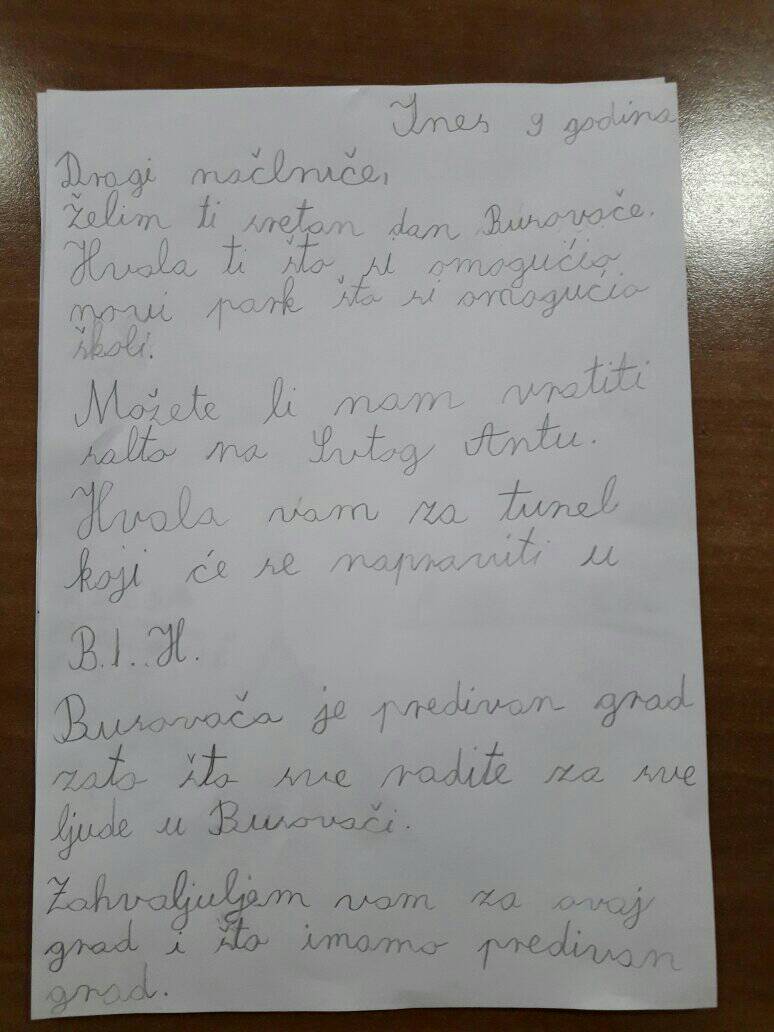 Ines 9 godina
Dragi načlniče,
Želim ti sretan dan Busovače.
Hvala ti što si omogućio
novi park što si omogućio
školi.
Možete li nam vratiti
salto na Svtog Antu.
Hvala vam za tunel
koji će se napraviti u
B.I..H.
Busovača je predivan grad
zato što sve radite za sve
ljude u Busovači.
Zahvaljuljem vam za ovaj
grad i što imamo predivan
grad.